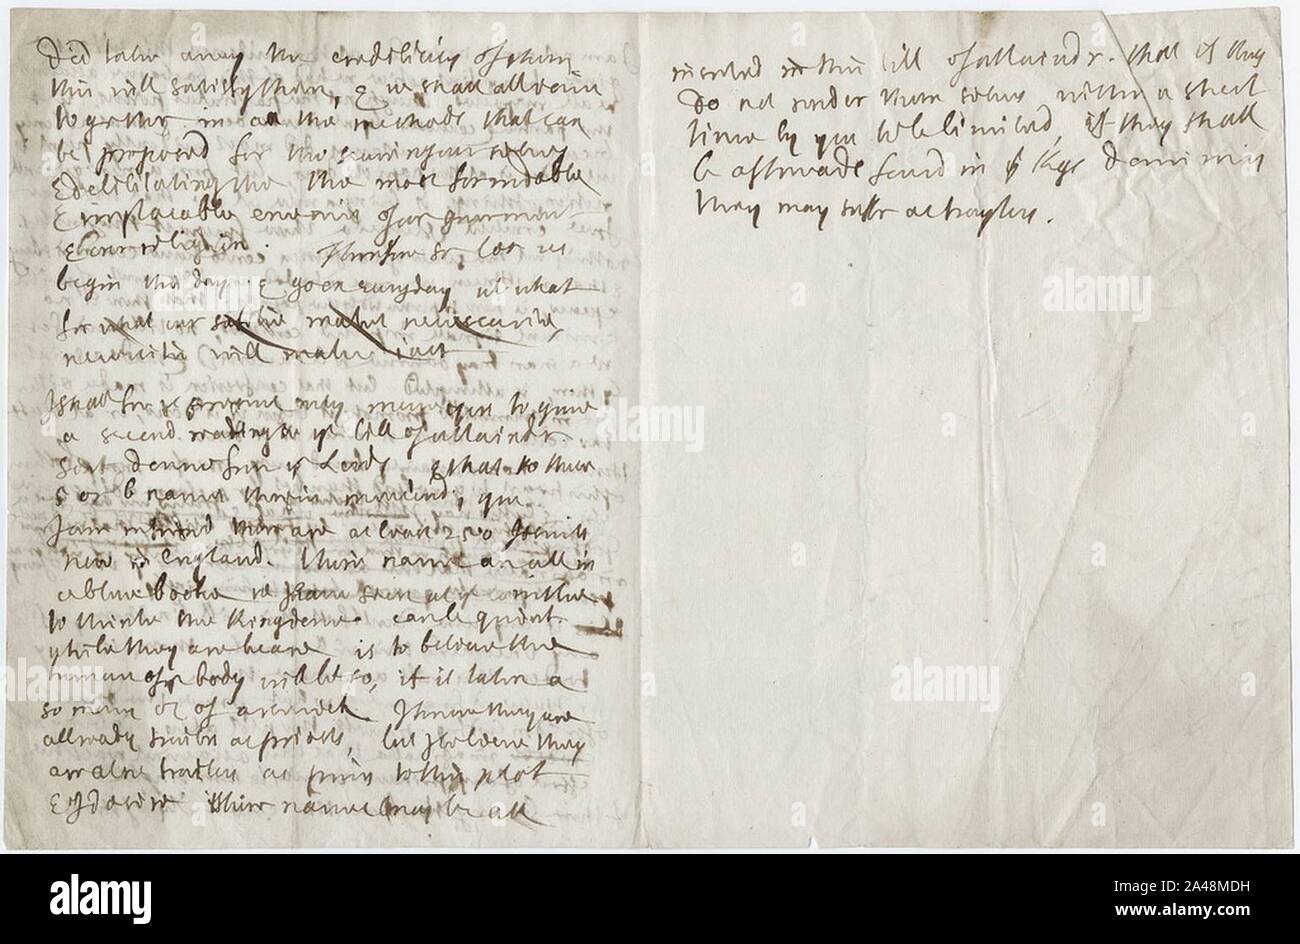 Did take away the credibility of them
this will satisfy them, & we shall all joine
together in all the methods that can
be proposed for the securing our selves
& debilitating the the most formidable
& implacable enemies of our
& religion. Therefore Sr, let us
begin this day & goe on every day wt what
for what our make
necessitie will make just
I shall for ye present only move you to give
a second reading to ye bill of attaindr
sent downe from ye Lords & that to those
5 or 6 names therein you
I am informd there are at least 250 Jesuits
now in England. Theire names are all in
a blew booke we have seen at ye comittee
to thinke the Kingdome can be quiet
while they are heare is to beleeve the
of ye body will be so, if it take a
or of arsenick. I know they are
allready traitors as priests, but I beleeve they
are alsoe traitors as privy to this plot
& I desire theire names may be all
inserted in this bill of attaindr. that if they
do not render them selves within a short
time by you to be limited, if they shall
be afterwards found in ye Kgs dominions
they may suffer as traytors.
alamy
alamy
Image ID: 2A48MDH
www.alamy.com